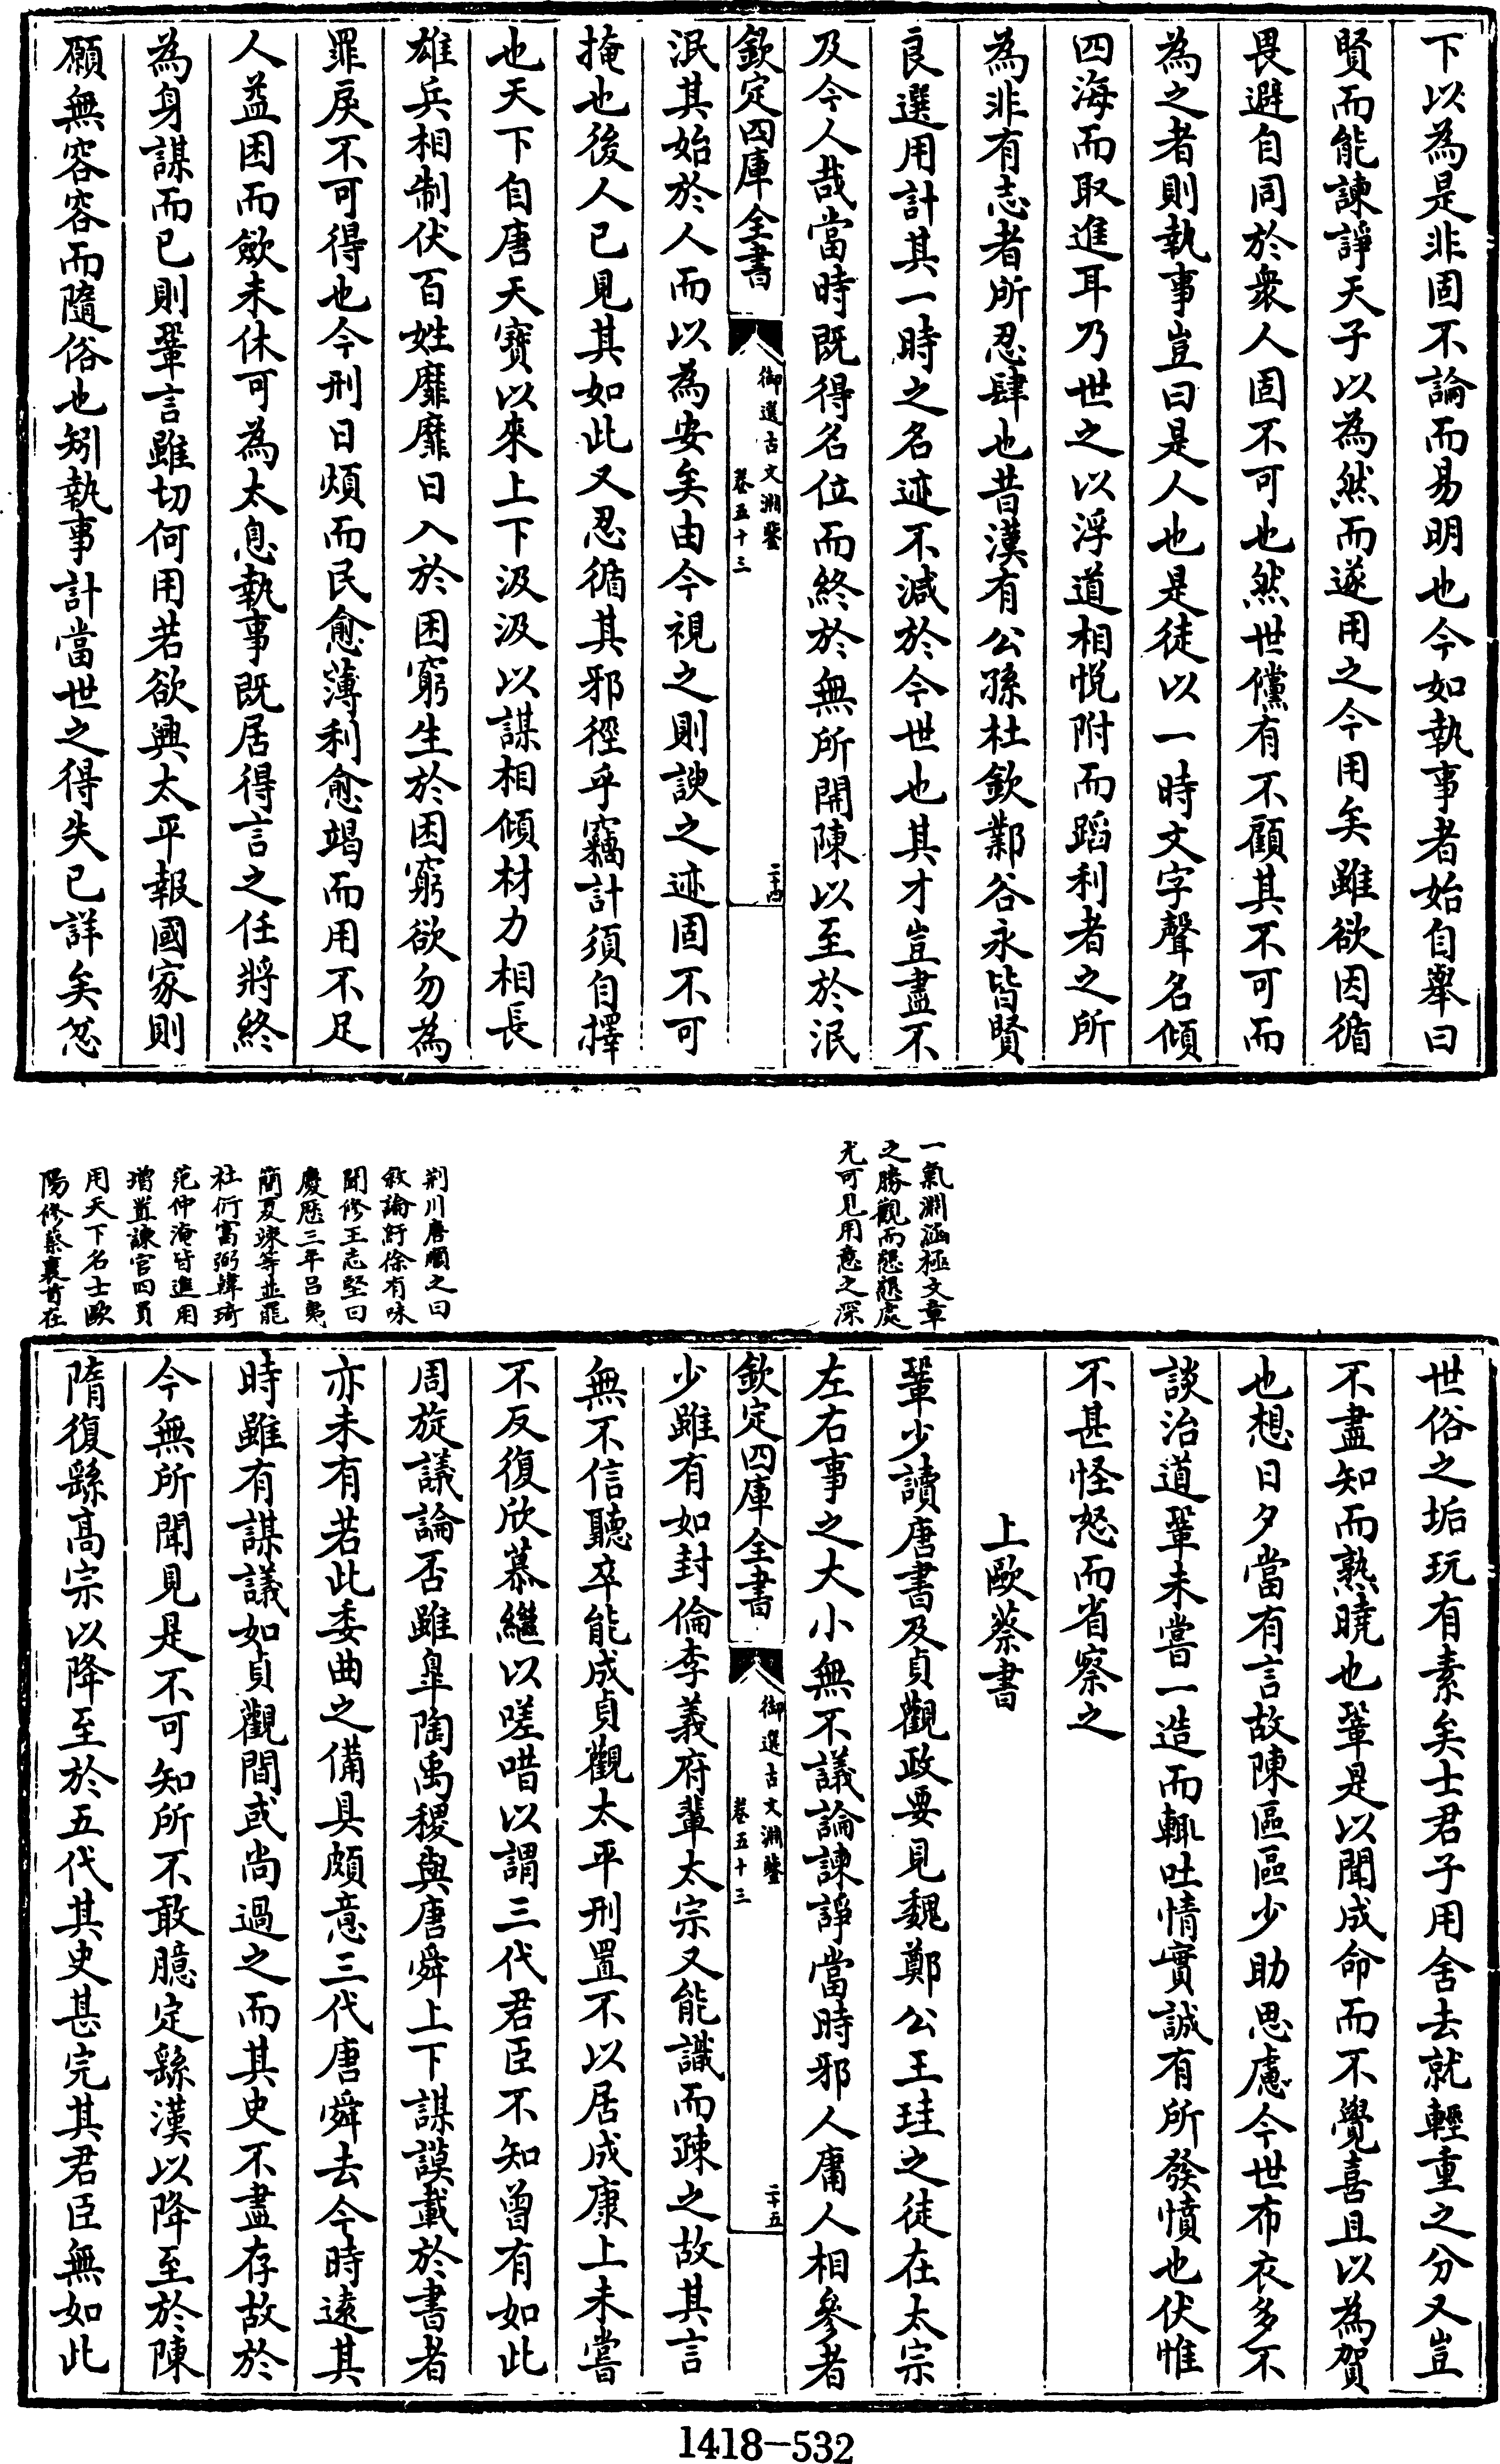 下以為是非固不論而易明也今如執事者始自舉曰
賢而能諫諍天子以為然而遂用之今用矣雖欲因循
畏避自同於衆人固不可也然世儻有不顧其不可而
為之者則執事豈曰是人也是徒以一時文字聲名傾
四海而取進耳乃世之以浮道相悅附而蹈利者之所
為非有志者所忍肆也昔漢有公孫杜欽鄴谷永皆賢
良選用計其一時之名迹不減於今世也其才豈盡不
及今人哉當時既得名位而終於無所開陳以至於泯
欽定四庫全書
御選古文淵鑒
卷五十三
二十四
泯其始於人而以為安矣由今視之則諛之迹固不可
掩也後人已見其如此又忍循其邪徑乎竊計須自擇
也天下自唐天寶以來上下汲汲以謀相傾材力相長
雄兵相制伏百姓靡靡日入於困窮生於困窮欲勿為
罪戾不可得也今刑日煩而民愈薄利愈竭而用不足
人益困而斂未休可為太息執事既居得言之任將終
為身謀而已則鞏言雖切何用若欲興太平報國家則
願無容容而隨俗也矧執事計當世之得失已詳矣忿
一氣淵涵極文章
之勝觀而懇懇處
尤可見用意之深
荆川唐順之曰
敘論紆徐有味
聞修王志堅曰
慶歷三年呂夷
簡夏竦等並罷
杜衍富弼韓琦
范仲淹皆進用
增置諫官四員
用天下名士歐
陽修蔡襄首在
世俗之垢玩有素矣士君子用舍去就輕重之分又豈
不盡知而熟曉也鞏是以聞成命而不覺喜且以為賀
也想日夕當有言故陳區區少助思慮今世布衣多不
談治道鞏未嘗一造而輒吐情實誠有所發憤也伏惟
不甚怪怒而省察之
上歐蔡書
鞏少讀唐書及貞觀政要見魏鄭公王珪之徒在太宗
左右事之大小無不議論諫諍當時邪人庸人相參者
欽定四庫全書
御選古文淵鑒
卷五十三
二十五
少雖有如封倫李義府輩太宗又能識而疎之故其言
無不信聽卒能成貞觀太平刑置不以居成康上未嘗
不反復欣慕繼以嗟唶以謂三代君臣不知曾有如此
周旋議論否雖臯陶禹稷與唐舜上下謀謨載於書者
亦未有若此委曲之備具頗意三代唐舜去今時遠其
時雖有謀議如貞觀間或尚過之而其史不盡存故於
今無所聞見是不可知所不敢臆定繇漢以降至於陳
隋復繇高宗以降至於五代其史甚完其君臣無如此
1418-532